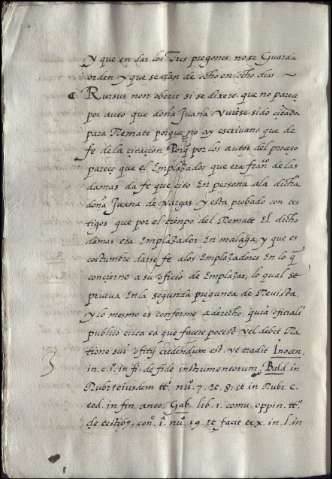 y que en dar los Tres pregones no se Guarda
orden y que se a dan de ocho en ocho dias
Rursus non obicit si se dixere que no pareçe
por auto que doña Juana Vuiese sido citada
para Remate porque no ay escriuano que de
fe de la citaçion Porq̃ por los autos del proceso
pareçe que el Emplazador que era fran.co de las
damas da fe que cito En persona a la dicha
doña Juana de vargas y esta probado con tes
tigos que por el tiempo del Remate El dicho
damas era Emplazador En malaga y que es
costumbre darse fe a los Emplazadores En lo q̃
conçierne a su ofiçio de Emplazar, lo qual se
prueua En la segunda pregunta de Reuista,
y lo mesmo es conforme a derecho, quia officiali
publico circa ea que facere potest vel debet Ra
tione sui officij credendum est. vt tradit Inocen.
in. c. 1. in fi. de fide instrumentorum. Bald. in
Rubr. eiusdem tt.º nu.º 7. et. 8. et in Rubr. C.
eod. in fin. anto. Gab. lib. 1. comu. oppin. tt.º
de testibus, con. 1. nu.º 19. et facit tex. in. l. in